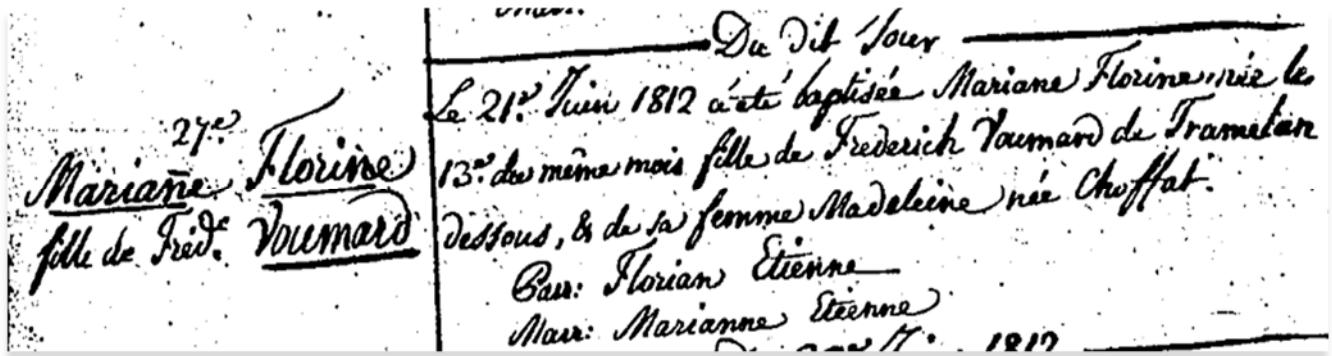 27.e
Mariañe Florine
fille de Fréd.c Voumard
Du dit Jour
Le 21.e Juin 1812 a été baptisée Mariane Florine, née le
13.e du même mois fille de Frederich Voumard de Tramelan
dessous, & de sa femme Madeleine née Choffat.
Parr: Florian Etienne
Marr: Marianne Etienne
1812